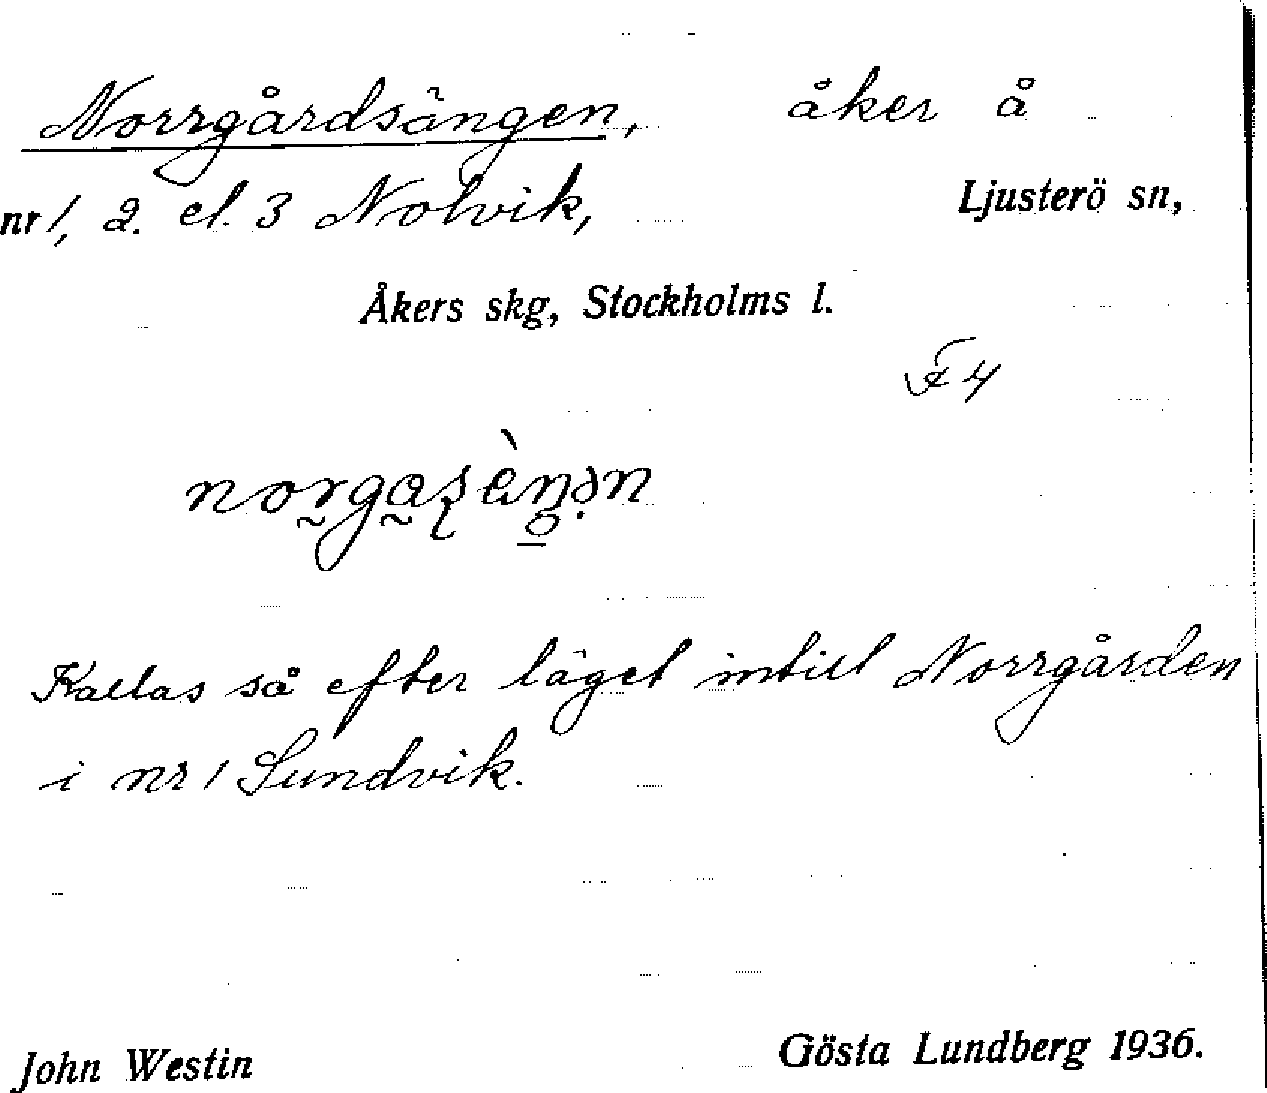 Norrgårdsängen, åker å
nr 1, 2. el. 3 Nolvik, Ljusterö sn,
Åkers skg, Stockholms l.
F 4
Kallas så efter läget intill Norrgården
i nr 1 Sundvik.
John Westin Gösta Lundberg 1936.